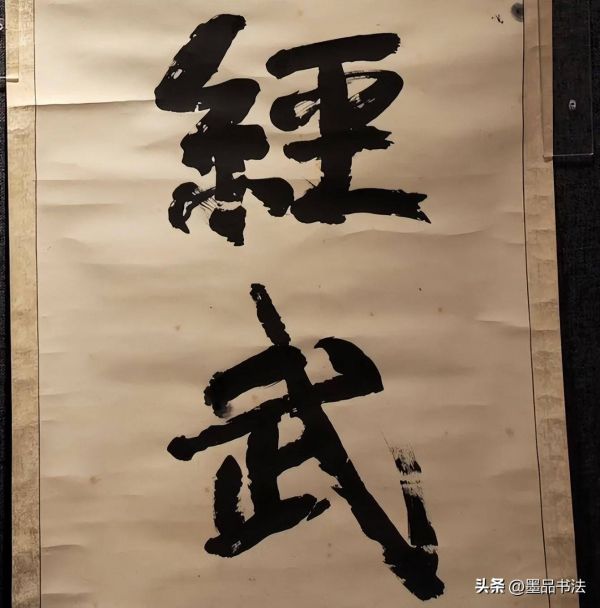 經
武
头条 @墨品书法